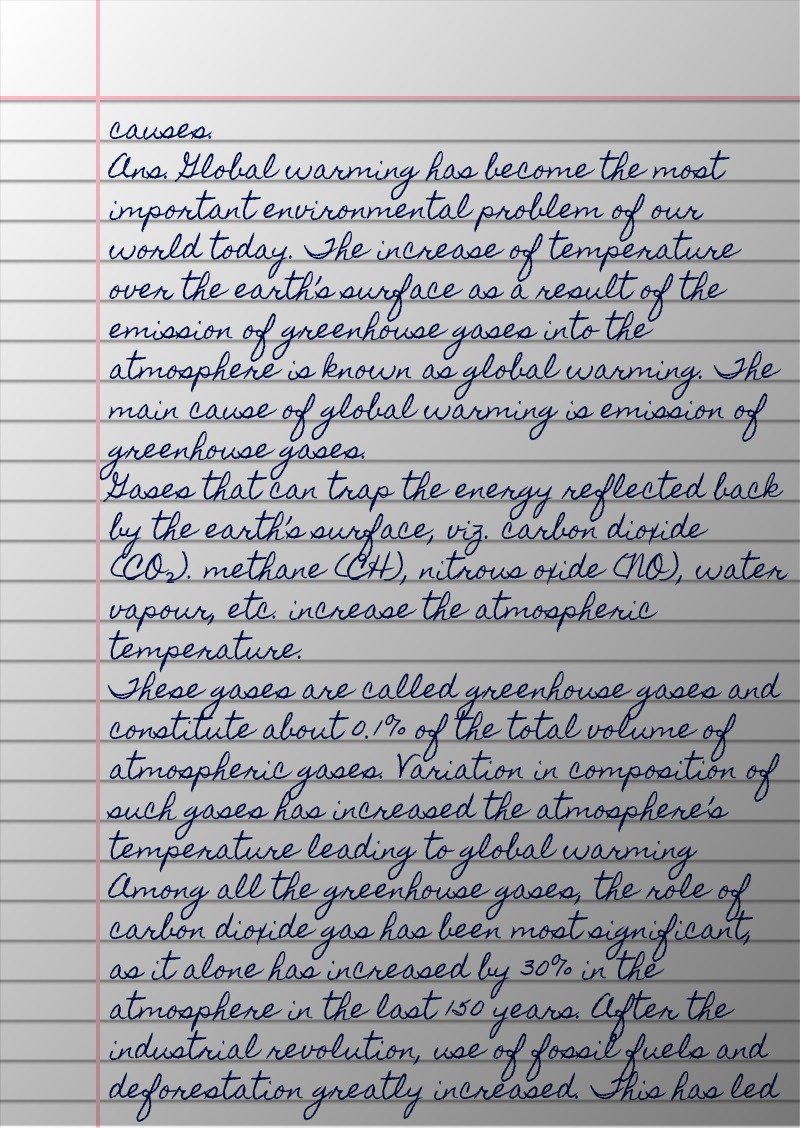 causes.
Ans. Global warming has become the most
important environmental problem of our
world today. The increase of temperature
over the earth's surface as a result of the
emission of greenhouse gases into the
atmosphere is known as global warming. The
main cause of global warming is emission of
greenhouse gases.
Gases that can trap the energy reflected back
by the earth's surface, viz. carbon dioxide
(CO₂). methane (CH), nitrous oxide (NO), water
vapour, etc. increase the atmospheric
temperature.
These gases are called greenhouse gases and
constitute about 0.1% of the total volume of
atmospheric gases. Variation in composition of
such gases has increased the atmosphere's
temperature leading to global warming
Among all the greenhouse gases, the role of
carbon dioxide gas has been most significant,
as it alone has increased by 30% in the
atmosphere in the last 150 years. After the
industrial revolution, use of fossil fuels and
deforestation greatly increased. This has led